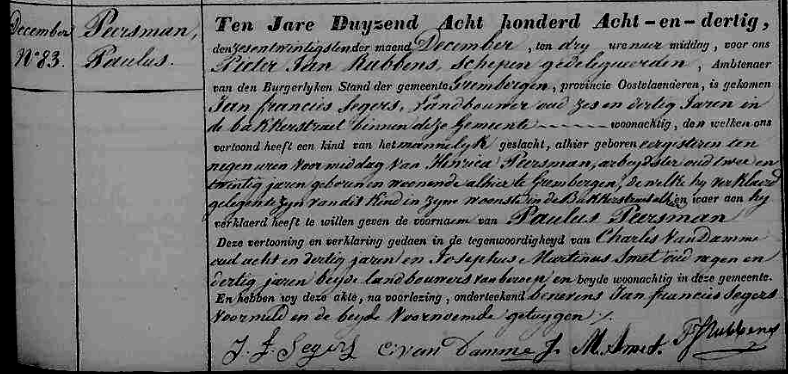 December
N° 83.
Peersman,
Paulus.
Ten Jare Duyzend Acht honderd Acht-en-dertig,
den zesentwintigsten der maend December, ten dry ure naer middag, voor ons
Pieter Jan Rubbens, Schepen gedelegueerden, Ambtenaer
van den Burgerlyken Stand der gemeente Grembergen, provincie Oostvlaenderen, is gekomen
Jan francies Segers, Landbouwer oud zes en dertig Jaren in
de bakkerstraet binnen deze Gemeente woonachtig, den welken ons
vertoond heeft een kind van het mannelyk geslacht, alhier geboren eergisteren ten
negen uren voormiddag van Henrica Peersman, arbeydster oud twee en
twintig jaren geboren en woonende alhier te Grembergen, de welke hy verklaerd
gelegen te zyn van dit kind in zyne woonste in de Bakkerstraet en waer aen hy
verklaerd heeft te willen geven de voornaem van Paulus Peersman
Deze vertooning en verklaring gedaen in de tegenwoordigheyd van Charles Van Damme
oud acht en dertig jaren en Josephus Martinus Smet oud negen en
dertig jaren beyde landbouwers van beroep en beyde woonachtig in deze gemeente.
En hebben wy deze akte, na voorlezing, onderteekend benevens Jan francies Segers
voormeld en de beyde voornoemde getuygen.
J. F. Segers C: van Damme J. M. Smet. PJ Rubbens